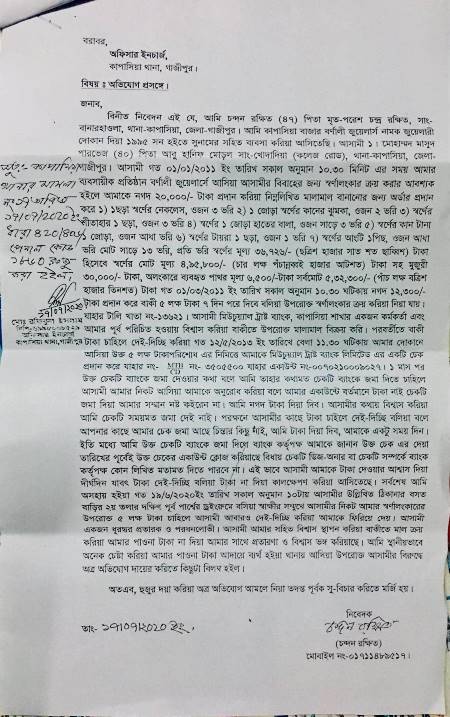 বরাবর,
অফিসার ইনচার্জ,
কাপাসিয়া থানা, গাজীপুর।
বিষয় ঃ অভিযোগ প্রসঙ্গে।
জনাব,
বিনীত নিবেদন এই যে, আমি চন্দন রক্ষিত (৪৭) পিতা মৃত-পরেশ চন্দ্র রক্ষিত, সাং-
বানারহাওলা, থানা-কাপাসিয়া, জেলা-গাজীপুর। আমি কাপাসিয়া বাজার বর্ণালী জুয়েলার্স নামক জুয়েলারী
দোকান দিয়া ১৯৯৫ সন হইতে সুনামের সহিত ব্যবসা করিয়া আসিতেছি। আসামী ১। মোহাম্মদ মাসুদ
পারভেজ (৪০) পিতা আবু হানিফ মোড়ল সাং-খোদাদিয়া (কলেজ রোড), থানা-কাপাসিয়া, জেলা-
গাজীপুর। আসামী গত ০১/০১/২০১১ ইং তারিখ সকাল অনুমান ১০.৩০ মিনিট এর সময় আমার
ব্যবসায়ীক প্রতিষ্ঠান বর্ণালী জুয়েলার্সে আসিয়া আসামীর বিবাহের জন্য স্বর্ণালংকার ক্রয় করার আবশ্যক
হইলে আমাকে নগদ ২০,০০০/- টাকা প্রদান করিয়া নিম্নলিখিত মালামাল বানানোর জন্য অর্ডার প্রদান
করে ১) ১ছড়া স্বর্ণের নেকলেস, ওজন ৩ ভরি ২) ১ জোড়া স্বর্ণের কানের ঝুমকা, ওজন ২ ভরি ৩) স্বর্ণের
সীতাহার ১ ছড়া, ওজন ৩ ভরি ৪) স্বর্ণের ১ জোড়া হাতের বালা, ওজন সাড়ে ৩ ভরি ৫) স্বর্ণের কান টানা
১ জোড়া, ওজন আধা ভরি ৬) স্বর্ণের টায়রা ১ ছড়া, ওজন ১ ভরি ৭) স্বর্ণের আংটি ১পিছ, ওজন আধা
ভরি মোট সাড়ে ১৩ ভরি, প্রতি ভরি স্বর্ণের মূল্য ৩৬,৭২৬/- (ছত্রিশ হাজার সাত শত ছাব্বিশ) টাকা
হিসেবে স্বর্ণের মোট মূল্য ৪,৯৫,৮০০/- (চার লক্ষ পঁচানব্বই হাজার আটশত) টাকা সহ মুজুরী
৩০,০০০/- টাকা, অলংকারে ব্যবহৃত পাথর মূল্য ৬,৫০০/-টাকা সর্বমোট ৫,৩২,৩০০/- (পাঁচ লক্ষ বত্রিশ
হাজার তিনশত) টাকা গত ০১/০৩/২০১১ ইং তারিখ সকাল অনুমান ১০.৩০ ঘটিকায় নগদ ১২,৩০০/-
টাকা প্রদান করে বাকী ৫ লক্ষ টাকা ৭ দিন পরে দিবে বলিয়া উপরোক্ত স্বর্ণালংকার ক্রয় করিয়া নিয়া যায়।
যাহার টালি খাতা নং-১৩৬২১। আসামী মিউচুয়াল ট্রাষ্ট ব্যাংক, কাপাসিয়া শাখার একজন কর্মকর্তা এবং
আমার পূর্ব পরিচিত হওয়ায় বিশ্বাস করিয়া বাকীতে উপরোক্ত মালামাল বিক্রয় করি। পরবর্তীতে বাকী
টাকা চাহিলে দেই-দিচ্ছি করিয়া গত ১২/৫/২০১৩ ইং তারিখে বেলা ১১.৩০ ঘটিকায় আমার দোকানে
আসিয়া উক্ত ৫ লক্ষ টাকাপরিশোধ এর নিমিত্তে আমাকে মিউচুয়াল ট্রাষ্ট ব্যাংক লিমিটেড এর একটি চেক
প্রদান করে যাহার নং- MTB/CD নং- ৩৫০৫৫০০ যাহার একাউন্ট নং-০০৭০২১০০০৯০২৭। ১ মাস পর
উক্ত চেকটি ব্যাংকে জমা দেওয়ার কথা বলে আমি তাহার কথামত চেকটি ব্যাংকে জমা দিতে চাহিলে
আসামী আমার নিকট আসিয়া আমাকে অনুরোধ করিয়া বলে আমার একাউন্টে বর্তমানে টাকা নাই চেকটি
জমা দিয়া আমার সম্মান নষ্ট করিবেন না। আমি নগদ টাকা নিয়া দিব। আসামীর কথায় বিশ্বাস করিয়া
আমি চেকটি সময়মত জমা দেই নাই। পরক্ষনে আসামীর কাছে টাকা চাহিলে দেই-দিচ্ছি বলিয়া বলে
আপনার কাছে আমার চেক জমা আছে চিন্তার কিছু নাই, আমি টাকা দিয়া দিব, আমাকে একটু সময় দিন।
ইতি মধ্যে আমি উক্ত চেকটি ব্যাংকে জমা দিলে ব্যাংক কর্তৃপক্ষ আমাকে জানান উক্ত চেক এর দেয়া
তারিখের পূর্বেই উক্ত চেকের একাউন্ট ক্লোজ করিয়াছে বিধায় চেকটি ডিজ-অনার বা চেকটি সম্পর্কে ব্যাংক
কর্তৃপক্ষ কোন লিখিত মতামত দিতে পারবে না। এই ভাবে আসামী আমাকে টাকা দেওয়ার আশ্বাস দিয়া
দীর্ঘদিন যাবৎ টাকা দেই-দিচ্ছি বলিয়া টাকা না দিয়া কালক্ষেপণ করিয়া আসিতেছে। সর্বশেষ আমি
অসহায় হইয়া গত ১৯/৬/২০২০ইং তারিখ সকাল অনুমান ১০টায় আসামীর উল্লিখিত ঠিকানার বসত
বাড়ির ২য় তলার দক্ষিণ পূর্ব পার্শ্বের ড্রইংরুমে বসিয়া স্বাক্ষীর সম্মুখে আসামীর নিকট আমার স্বর্ণালংকারের
উপরোক্ত ৫ লক্ষ টাকা চাহিলে আসামী আবারও দেই-দিচ্ছি করিয়া আমাকে ফিরিয়ে দেয়। আসামী
একজন ধুরন্ধর প্রতারক ও পরধনলোভী। আসামী আমার সহিত বিশ্বাস স্থাপন করিয়া বাকীতে মাল ক্রয়
করিয়া আমার পাওনা টাকা না দিয়া আমার সাথে প্রতারণা ও বিশ্বাস ভঙ্গ করিয়াছে। আমি স্থানীয়ভাবে
অনেক চেষ্টা করিয়া আমার পাওনা টাকা আদায়ে ব্যর্থ হইয়া থানায় আসিয়া উপরোক্ত আসামীর বিরুদ্ধে
অত্র অভিযোগ দায়ের করিতে কিছুটা বিলম্ব হইল।
অতএব, হুজুর দয়া করিয়া অত্র অভিযোগ আমলে নিয়া তদন্ত পূর্বক সু-বিচার করিতে মর্জি হয়।
নিবেদক
চন্দন রক্ষিত
(চন্দন রক্ষিত)
মোবাইল নং-০১৭১১৪৮৯৫১৭।
তাং- ১৭/০৭/২০২০ ইং
থানার মামলা
১৭/০৭/২০২০ইং
ধারা ৪২০/৪০৬
পেনাল কোড
১৮৬০ রুজু
করা হইল।
১৭/০৭/২০
মোঃ রফিকুল ইসলাম
অফিসার ইনচার্জ
কাপাসিয়া থানা, গাজীপুর